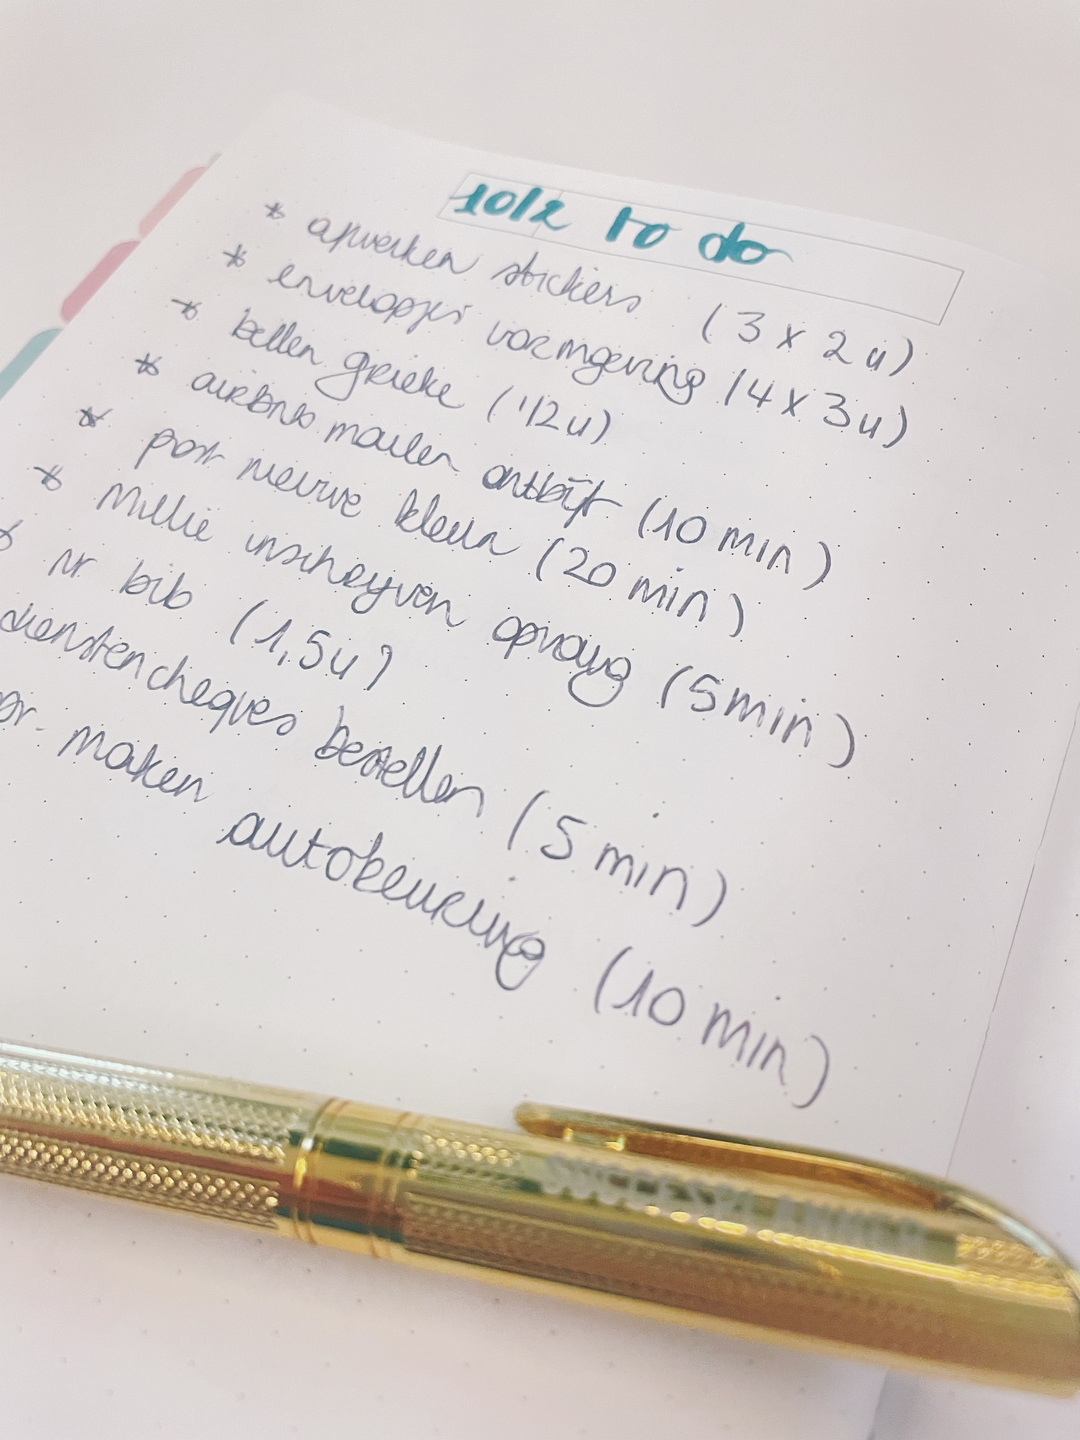 10/2 to do
* afwerken stickers (3 x 2u)
* envelopjes vormgeving (4 x 3u)
* bellen grieke ('12u)
* airbnb mailen ontbijt (10 min)
* post nieuwe kleur (20 min)
* Millie inschrijven opvang (5min)
* nr bib (1,5u)
dienstencheques bestellen (5 min)
maken autokeuring (10 min)
SUCCESPLANNER